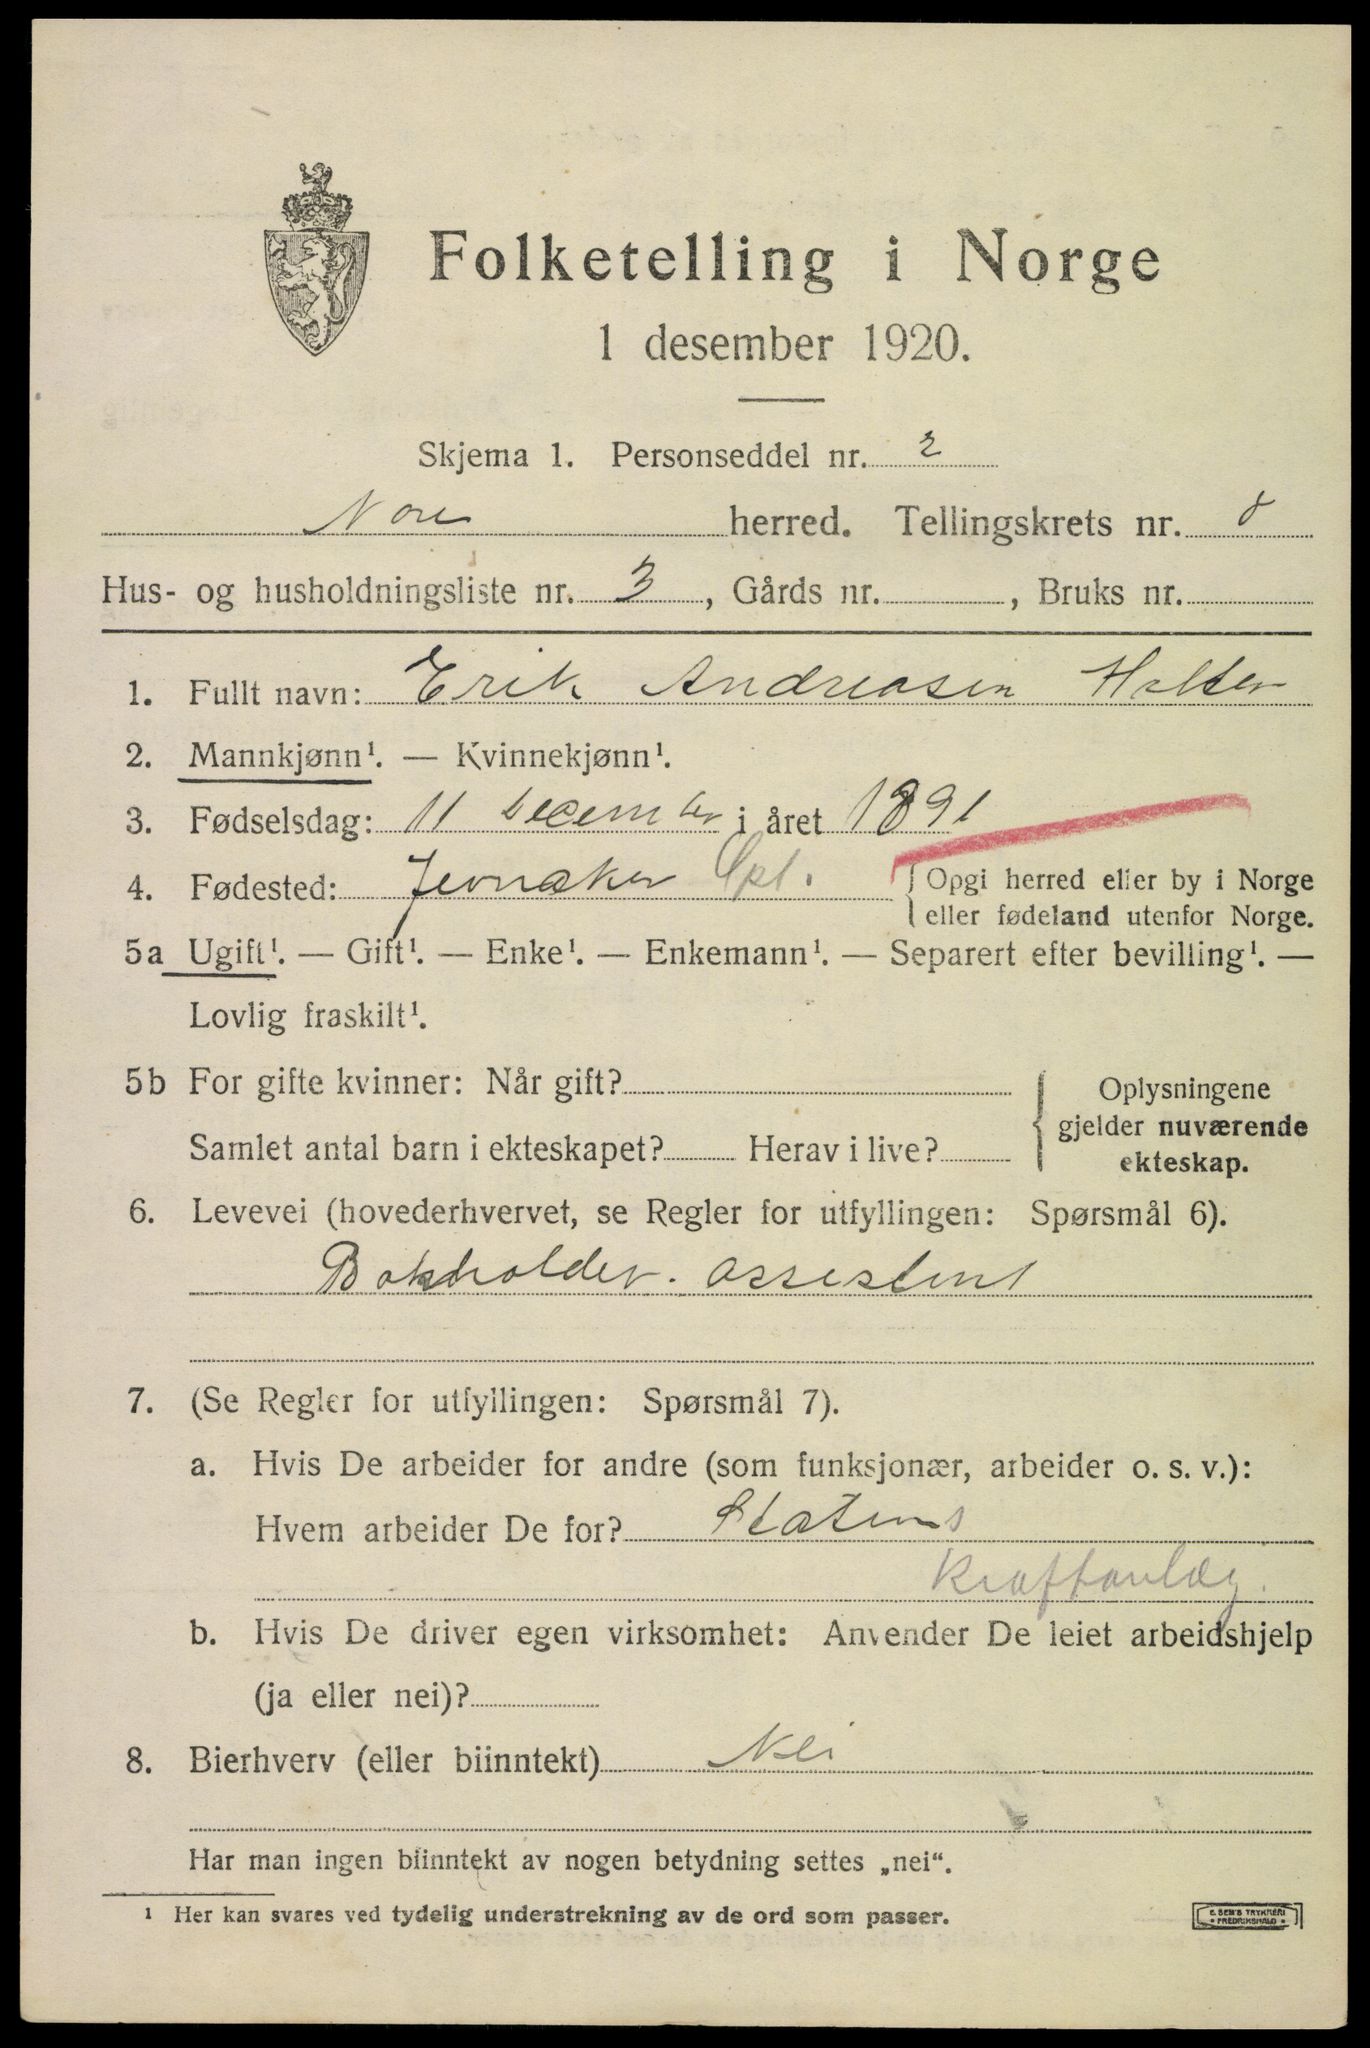 Folketelling i Norge
1 desember 1920.
Skjema 1. Personseddel nr. 2
Nore herred. Tellingskrets nr. 8
Hus- og husholdningsliste nr. 3, Gårds nr. , Bruks nr.
1. Fullt navn: Erik Andreasen Halter
2. Mannkjønn¹. — Kvinnekjønn¹.
3. Fødselsdag: 11 December i året 1891
4. Fødested: Jevnaker Opl. Opgi herred eller by i Norge
eller fødeland utenfor Norge.
5a Ugift¹. — Gift¹. — Enke¹. — Enkemann¹. — Separert efter bevilling¹. —
Lovlig fraskilt¹.
5b For gifte kvinner: Når gift?
Samlet antal barn i ekteskapet? Herav i live?
Oplysningene
gjelder nuværende
ekteskap.
6. Levevei (hovederhvervet, se Regler for utfyllingen: Spørsmål 6).
Bokholder. assistent
7. (Se Regler for utfyllingen: Spørsmål 7).
a. Hvis De arbeider for andre (som funksjonær, arbeider o. s. v.):
Hvem arbeider De for? Statens
Kraftanlæg.
b. Hvis De driver egen virksomhet: Anvender De leiet arbeidshjelp
(ja eller nei)?
8. Bierhverv (eller biinntekt) Nei
Har man ingen biinntekt av nogen betydning settes „nei“.
¹ Her kan svares ved tydelig understrekning av de ord som passer.
E. SEM'S TRYKKERI
FREDRIKSHALD